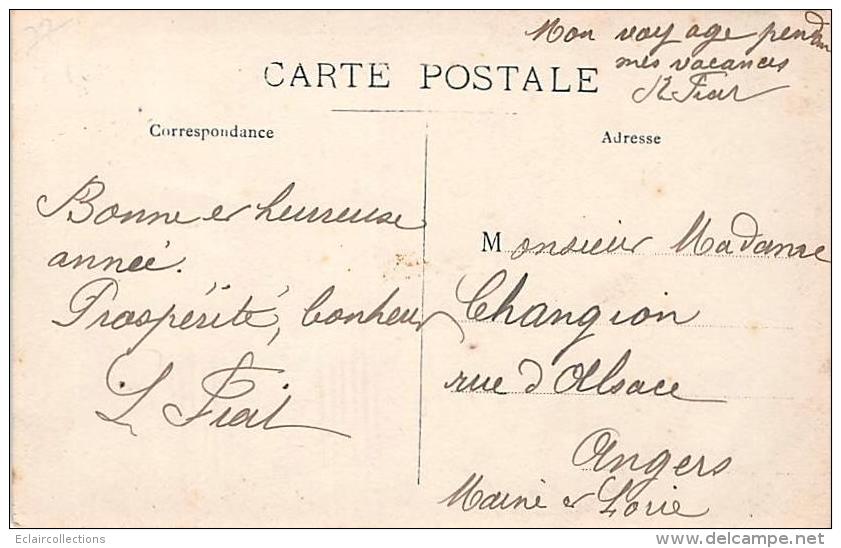 Mon voyage pendan
mes vacances
CARTE POSTALE
Correspondance
Adresse
Bonne et heureuse
année.
Prospérité, bonheur
L Fiat
Monsieur Madame
Changion
rue d'Alsace
Angers
Maine et Loire
Eclaircollections
delcampe.net